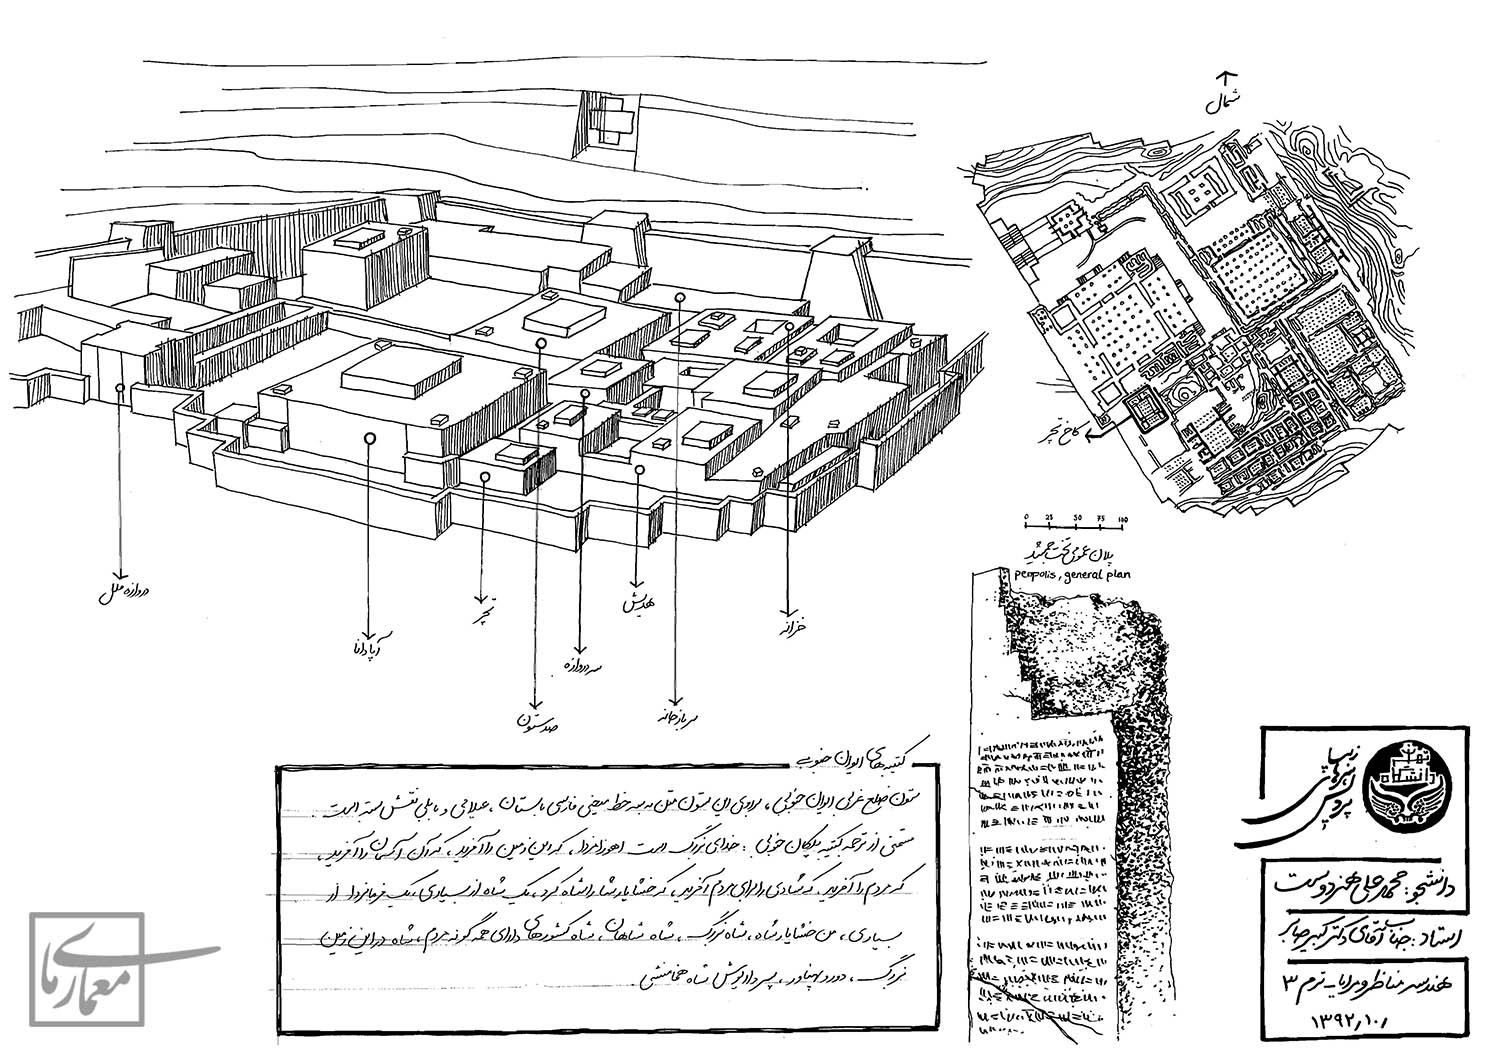 شمال
کاخ تچر
0 25 50 75 100
پلان عمومی تخت جمشید
pespolis, general plan
دروازه ملل
آپادانا
تچر
صد ستون
سه دروازه
هدیش
سربازخانه
خزانه
کتیبه های ایوان جنوبی
ستون ضلع غربی ایوان جنوبی، بر روی این ستون متن به سه خط میخی فارسی باستان، عیلامی و بابلی نقش شده است
متنی از ترجمه کتیبه پلکان جنوبی : خدای بزرگ است اهورامزدا، که این زمین را آفرید، که آن آسمان را آفرید،
که مردم را آفرید، که شادی را برای مردم آفرید، که خشایارشا را شاه کرد، یک شاه از بسیاری، یک فرمانروا از
بسیاری، من خشایارشاه، شاه بزرگ، شاه شاهان، شاه کشورهای دارای همه گونه مردم، شاه در این زمین
بزرگ، دور و پهناور، پسر داریوش شاه هخامنشی
پردیس هنرهای زیبا
دانشگاه تهران
دانشجو: محمدعلی هنردوست
استاد: جناب آقای دکتر کبیر صابر
هندسه مناظر و مرایا - ترم ۳
۱۳۹۲٫۱۰٫
معمارمای